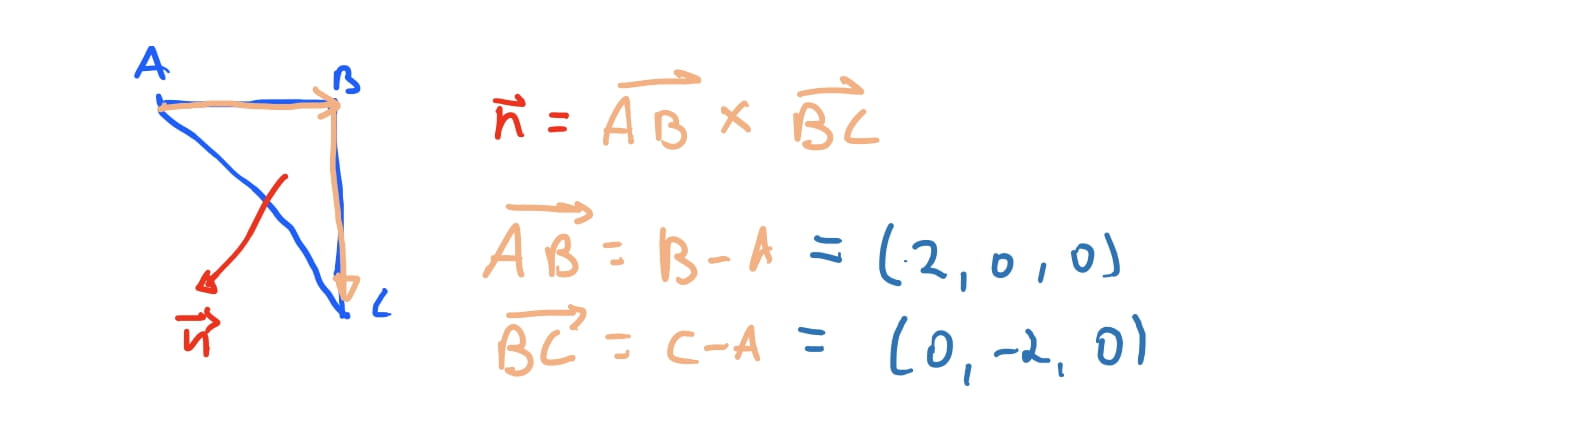 A
B
C
n⃗
n⃗ = A⃗B⃗ × B⃗C⃗
A⃗B⃗ = B - A = (2, 0, 0)
B⃗C⃗ = C - A = (0, -2, 0)